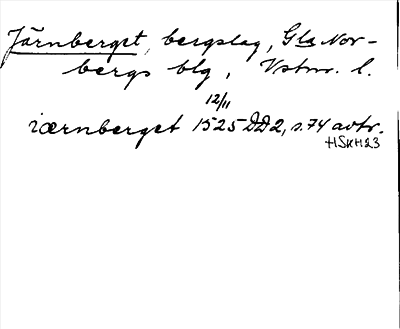 Järnberget, bergslag, Gla Nor-
bergs blg, Vstm. l.
12/11
iærnberget 1525 DD2, s. 74 avtr.
HSKH23